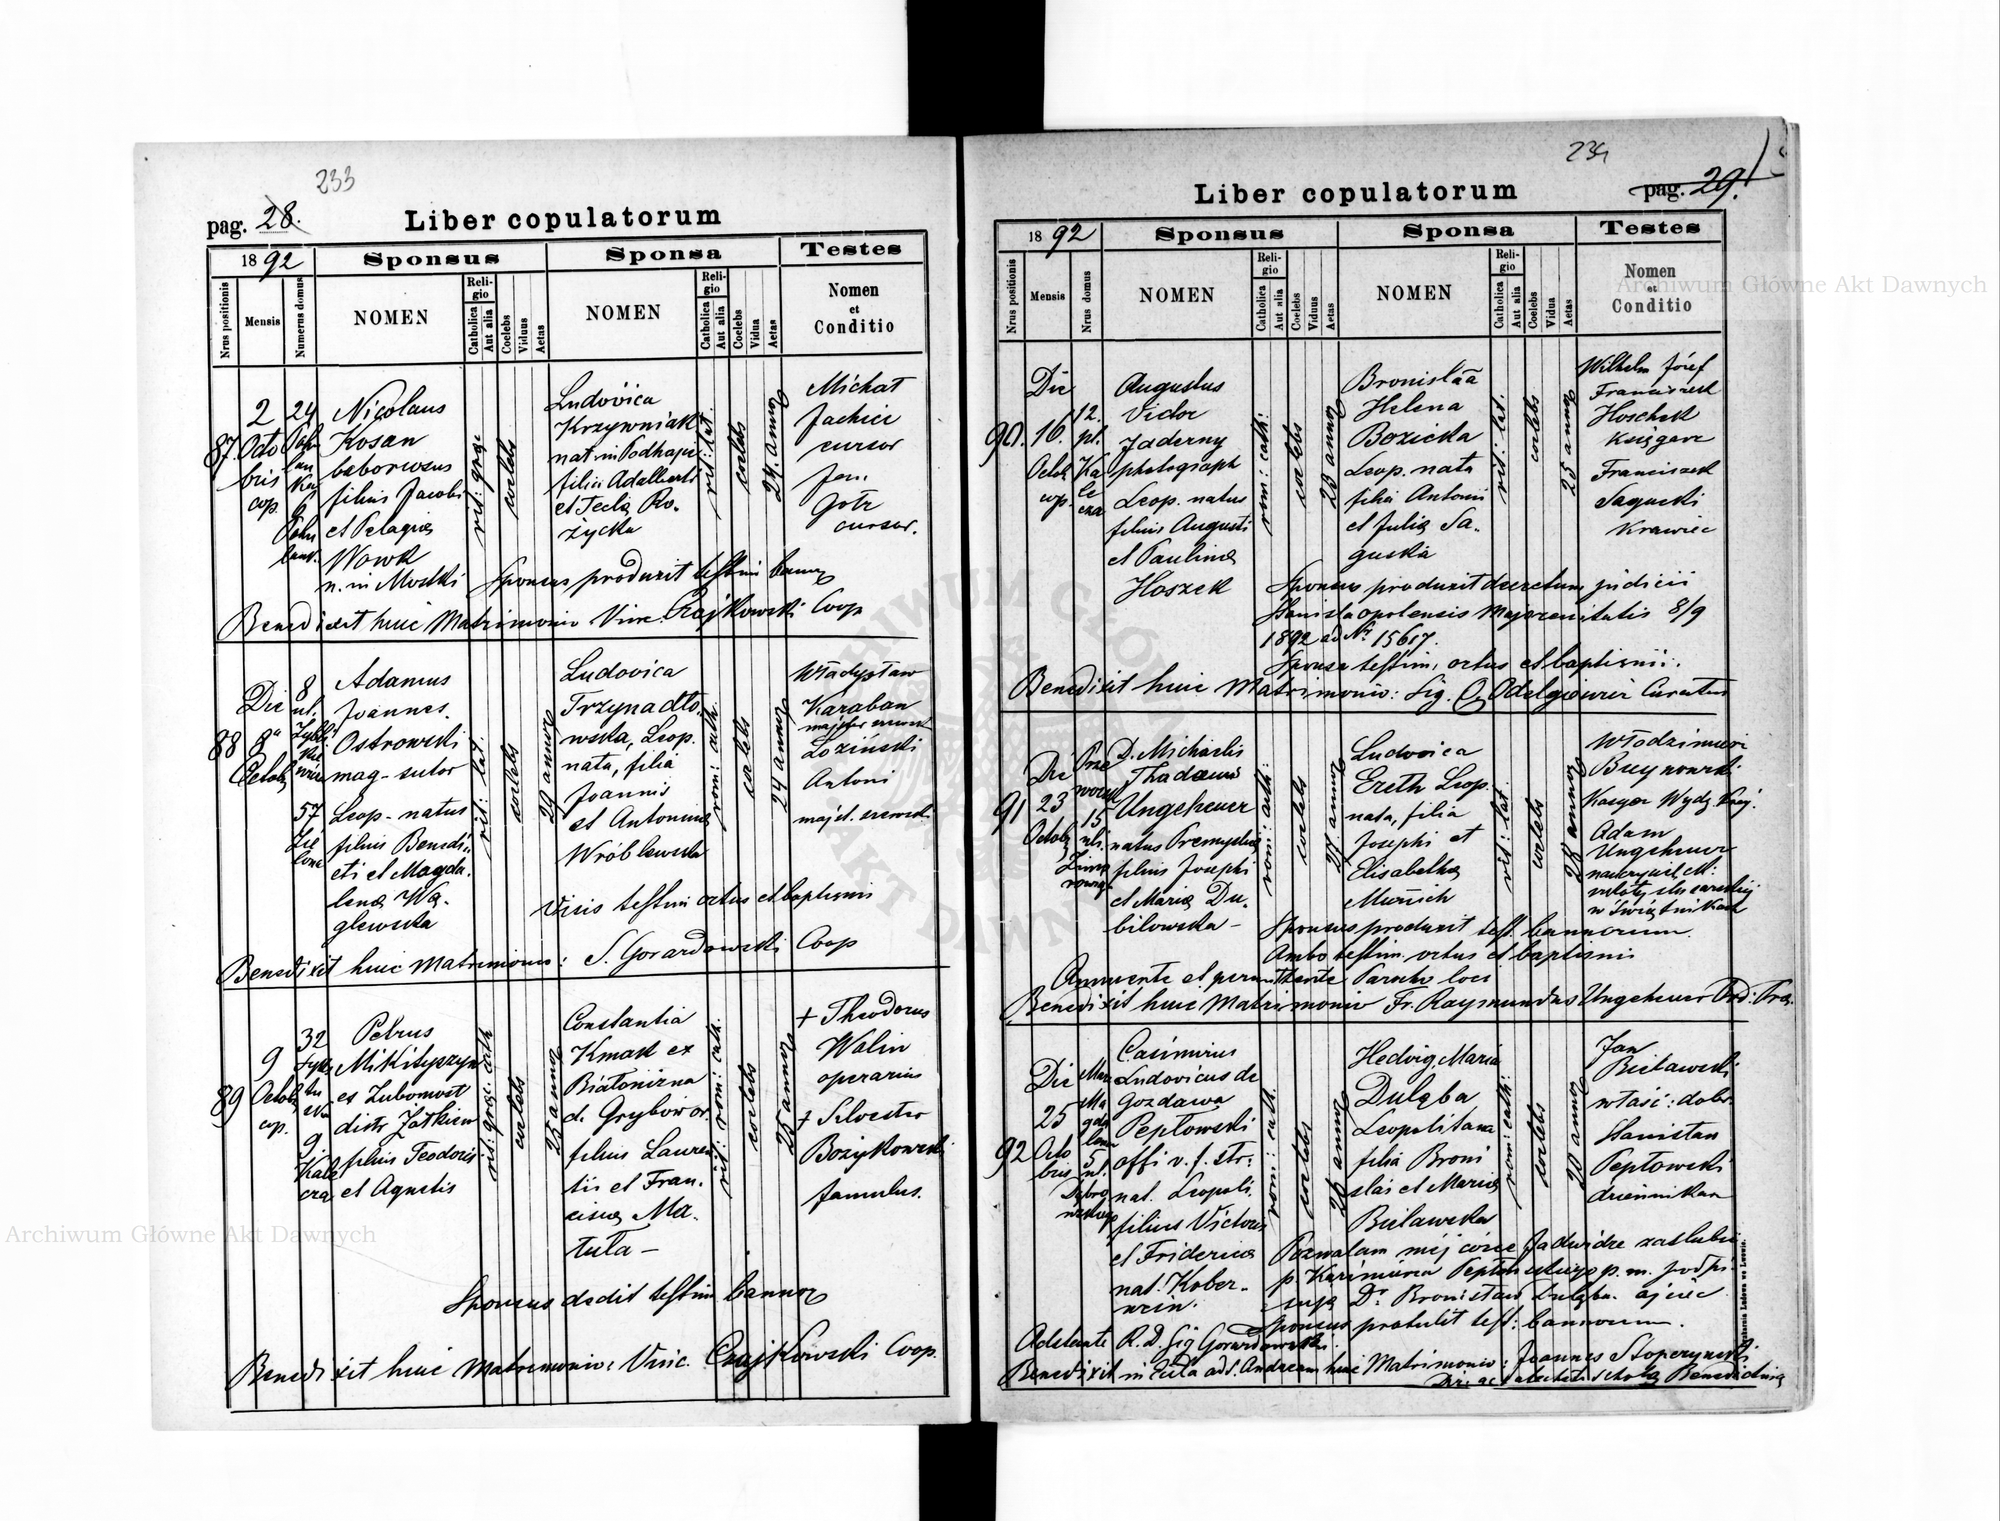 233
pag. 28.
Liber copulatorum
1892
Sponsus
Sponsa
Testes
Nrus positionis
Mensis
Numerus domus
NOMEN
Religio
Catholica
Aut alia
Coelebs
Viduus
Aetas
NOMEN
Religio
Catholica
Aut alia
Coelebs
Vidua
Aetas
Nomen
et
Conditio
87.
2
Octo
bris
cop.
24
Nicolaus
Kosan
filius Jacobi
et Pelagiæ
Wowk
n. in Mostki
rit: græc
coelebs
Ludovica
Krzywniak
nat. in Podhajce
filia Adalberti
et Teclæ Ro-
życka
rit: lat.
coelebs
24. annor
Michał
cursor
Jan
Gotz
cursor.
Sponsus produxit testim bannor
Benedixit huic Matrimonio Vinc. Czajkowski Coop
88
Die
8a
Octob
8
ul.
57
Zie
lona
Adamus
Joannes.
Ostrowski
mag- sutor
Leop- natus
filius Benedi-
cti et Magda-
lenæ Wę-
glewska
rit: lat.
coelebs
29 annor
Ludovica
Trzynadło-
wska, Leop.
nata, filia
Joannis
et Antoninæ
Wróblewska
rom: cath.
coelebs
24 annor
Władysław
Karaban
majster szewsk
Łoziński
Antoni
majst. szewsk
Visis testim ortus et baptismi
Benedixit huic Matrimonio: S. Gorardowski Coop
89
9
Octob
cop.
32
9
Kale
cza
Petrus
Mikityszyn
ex Lubomost
distr Żółkiew
filius Teodori
et Agnetis
rit: græc: cath
coelebs
25 annor
Constantia
Kmak ex
Białonizna
d. Grybów or.
filia Lauren
tii et Fran-
ciscæ Ma-
tuła -
rit: rom: cath.
coelebs
25 annor
+ Theodorus
Walin
operarius
+ Silvester
Bożykowski
famulus.
Sponsus dedit testim bannor
Benedixit huic Matrimonio: Vinc. Czajkowski Coop.
234
Liber copulatorum
pag. 29.
1892
Sponsus
Sponsa
Testes
Nrus positionis
Mensis
Nrus domus
NOMEN
Religio
Catholica
Aut alia
Coelebs
Viduus
Aetas
NOMEN
Religio
Catholica
Aut alia
Coelebs
Vidua
Aetas
Nomen
et
Conditio
90.
Die
16.
Octob
cop.
12.
pl.
Ka
le
cza
Augustus
Victor
Jaderny
photograph
Leop. natus
filius Augusti
et Paulinæ
Hoszek
rom: cath:
coelebs
23 annor
Bronisláa
Helena
Bozicka
Leop. nata
filia Antonii
et Juliæ Sa-
guska
rit: lat.
coelebs
25 annor
Wilhelm Józef
Franciszek
Hoschek
Księgarz
Franciszek
Sagucki
Krawiec
Sponsus produxit decretum judicii
Stanislaopolensis Majorenitatis 8/9
1892 ad Nr 15617.
Sponsa testim: ortus et baptismi:.
Benedixit huic Matrimonio: Sig. Odelgiewicz Curatus
91
Die
23
Octob
15
ul.
D. Michaelis
Thadæus
Ungeheuer
natus Premysliæ
filius Josephi
et Mariæ Du-
bilowska -
rom: cath:
coelebs
27 annor
Ludovica
Ereth Leop.
nata, filia
Josephi et
Elisabetha
Münich
rit: lat
coelebs
28 annor
Włodzimierz
Kasyer Wydz. Kraj.
Adam
Ungeheuer
Sponsus produxit test. bannorum.
Ambo testim. ortus et baptismi
Annuente et permittente Parocho loci
Benedixit huic Matrimonio Fr. Raymundus Ungeheuer Ord: Præ.
92
Die
25
Octo
bris
Mar.
Ma
gda
lena
5
ul.
Casimirus
Ludovicus de
Gozdawa
Pepłowski
nat. Leopoli.
filius Victoris
et Fridericæ
nat. Kober-
wein.
rom: cath.
coelebs
26 annor
Hedvig, Maria
Dulęba
Leopolitana
filia Broni
slai et Mariæ
Bielawska
rom: cath:
coelebs
20 annor
Jan
Bielawski
właść: dóbr.
Stanisław
Pepłowski
dziennikarz
Pozwalam méj córce Jadwidze zaślubić
p. Kazimierza Pepłowskiego p. m. podpi-
suję Dr Bronisław Dulęba. ojciec
Sponsus protulit test: bannorum.
Adstante R. D. Sig Gorardowski.
Benedixit in Ecla ad S. Andream huic Matrimonio: Joannes
Scholæ Benedictinis
Archiwum Główne Akt Dawnych
Archiwum Główne Akt Dawnych
ARCHIWUM GŁÓWNE AKT DAWNYCH